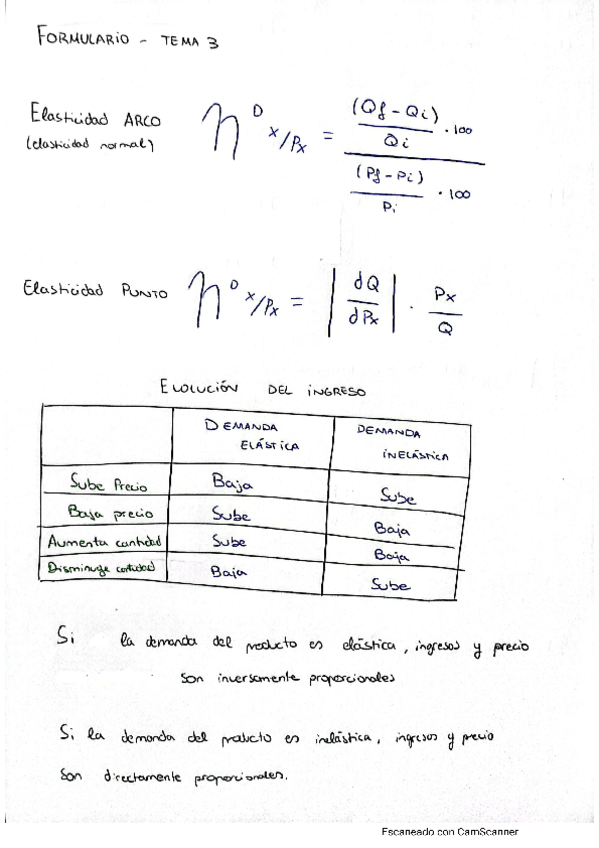 FORMULARIO - TEMA 3
Elasticidad ARCO
(elasticidad normal)
η^D x/Px = ((Qf - Qi) / Qi · 100) / ((Pf - Pi) / Pi · 100)
Elasticidad PUNTO η^D x/Px = |dQ / dPx| · Px / Q
EVOLUCIÓN DEL INGRESO
DEMANDA ELÁSTICA DEMANDA INELÁSTICA
Sube Precio Baja Sube
Baja precio Sube Baja
Aumenta cantidad Sube Baja
Disminuye cantidad Baja Sube
Si la demanda del producto es elástica, ingresos y precio
son inversamente proporcionales
Si la demanda del producto es inelástica, ingresos y precio
son directamente proporcionales.
Escaneado con CamScanner